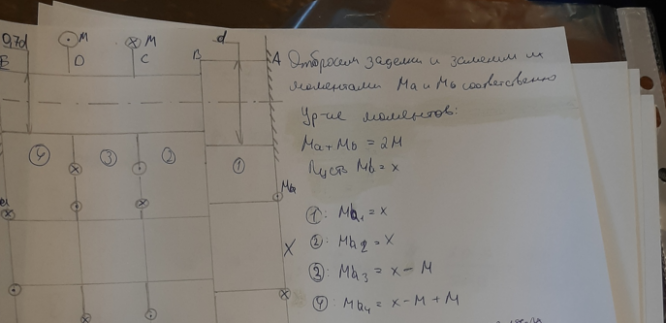 0,7d
M
M
d
E
D
C
B
A
Отбросим заделки и заменим их
моментами Ma и Mb соответственно
Ур-ие моментов:
Ma + Mb = 2M
Пусть Mb = x
4
3
2
1
Ma
X
①: Mb1 = x
②: Mb2 = x
③: Mb3 = x - M
④: Mb4 = x - M + M